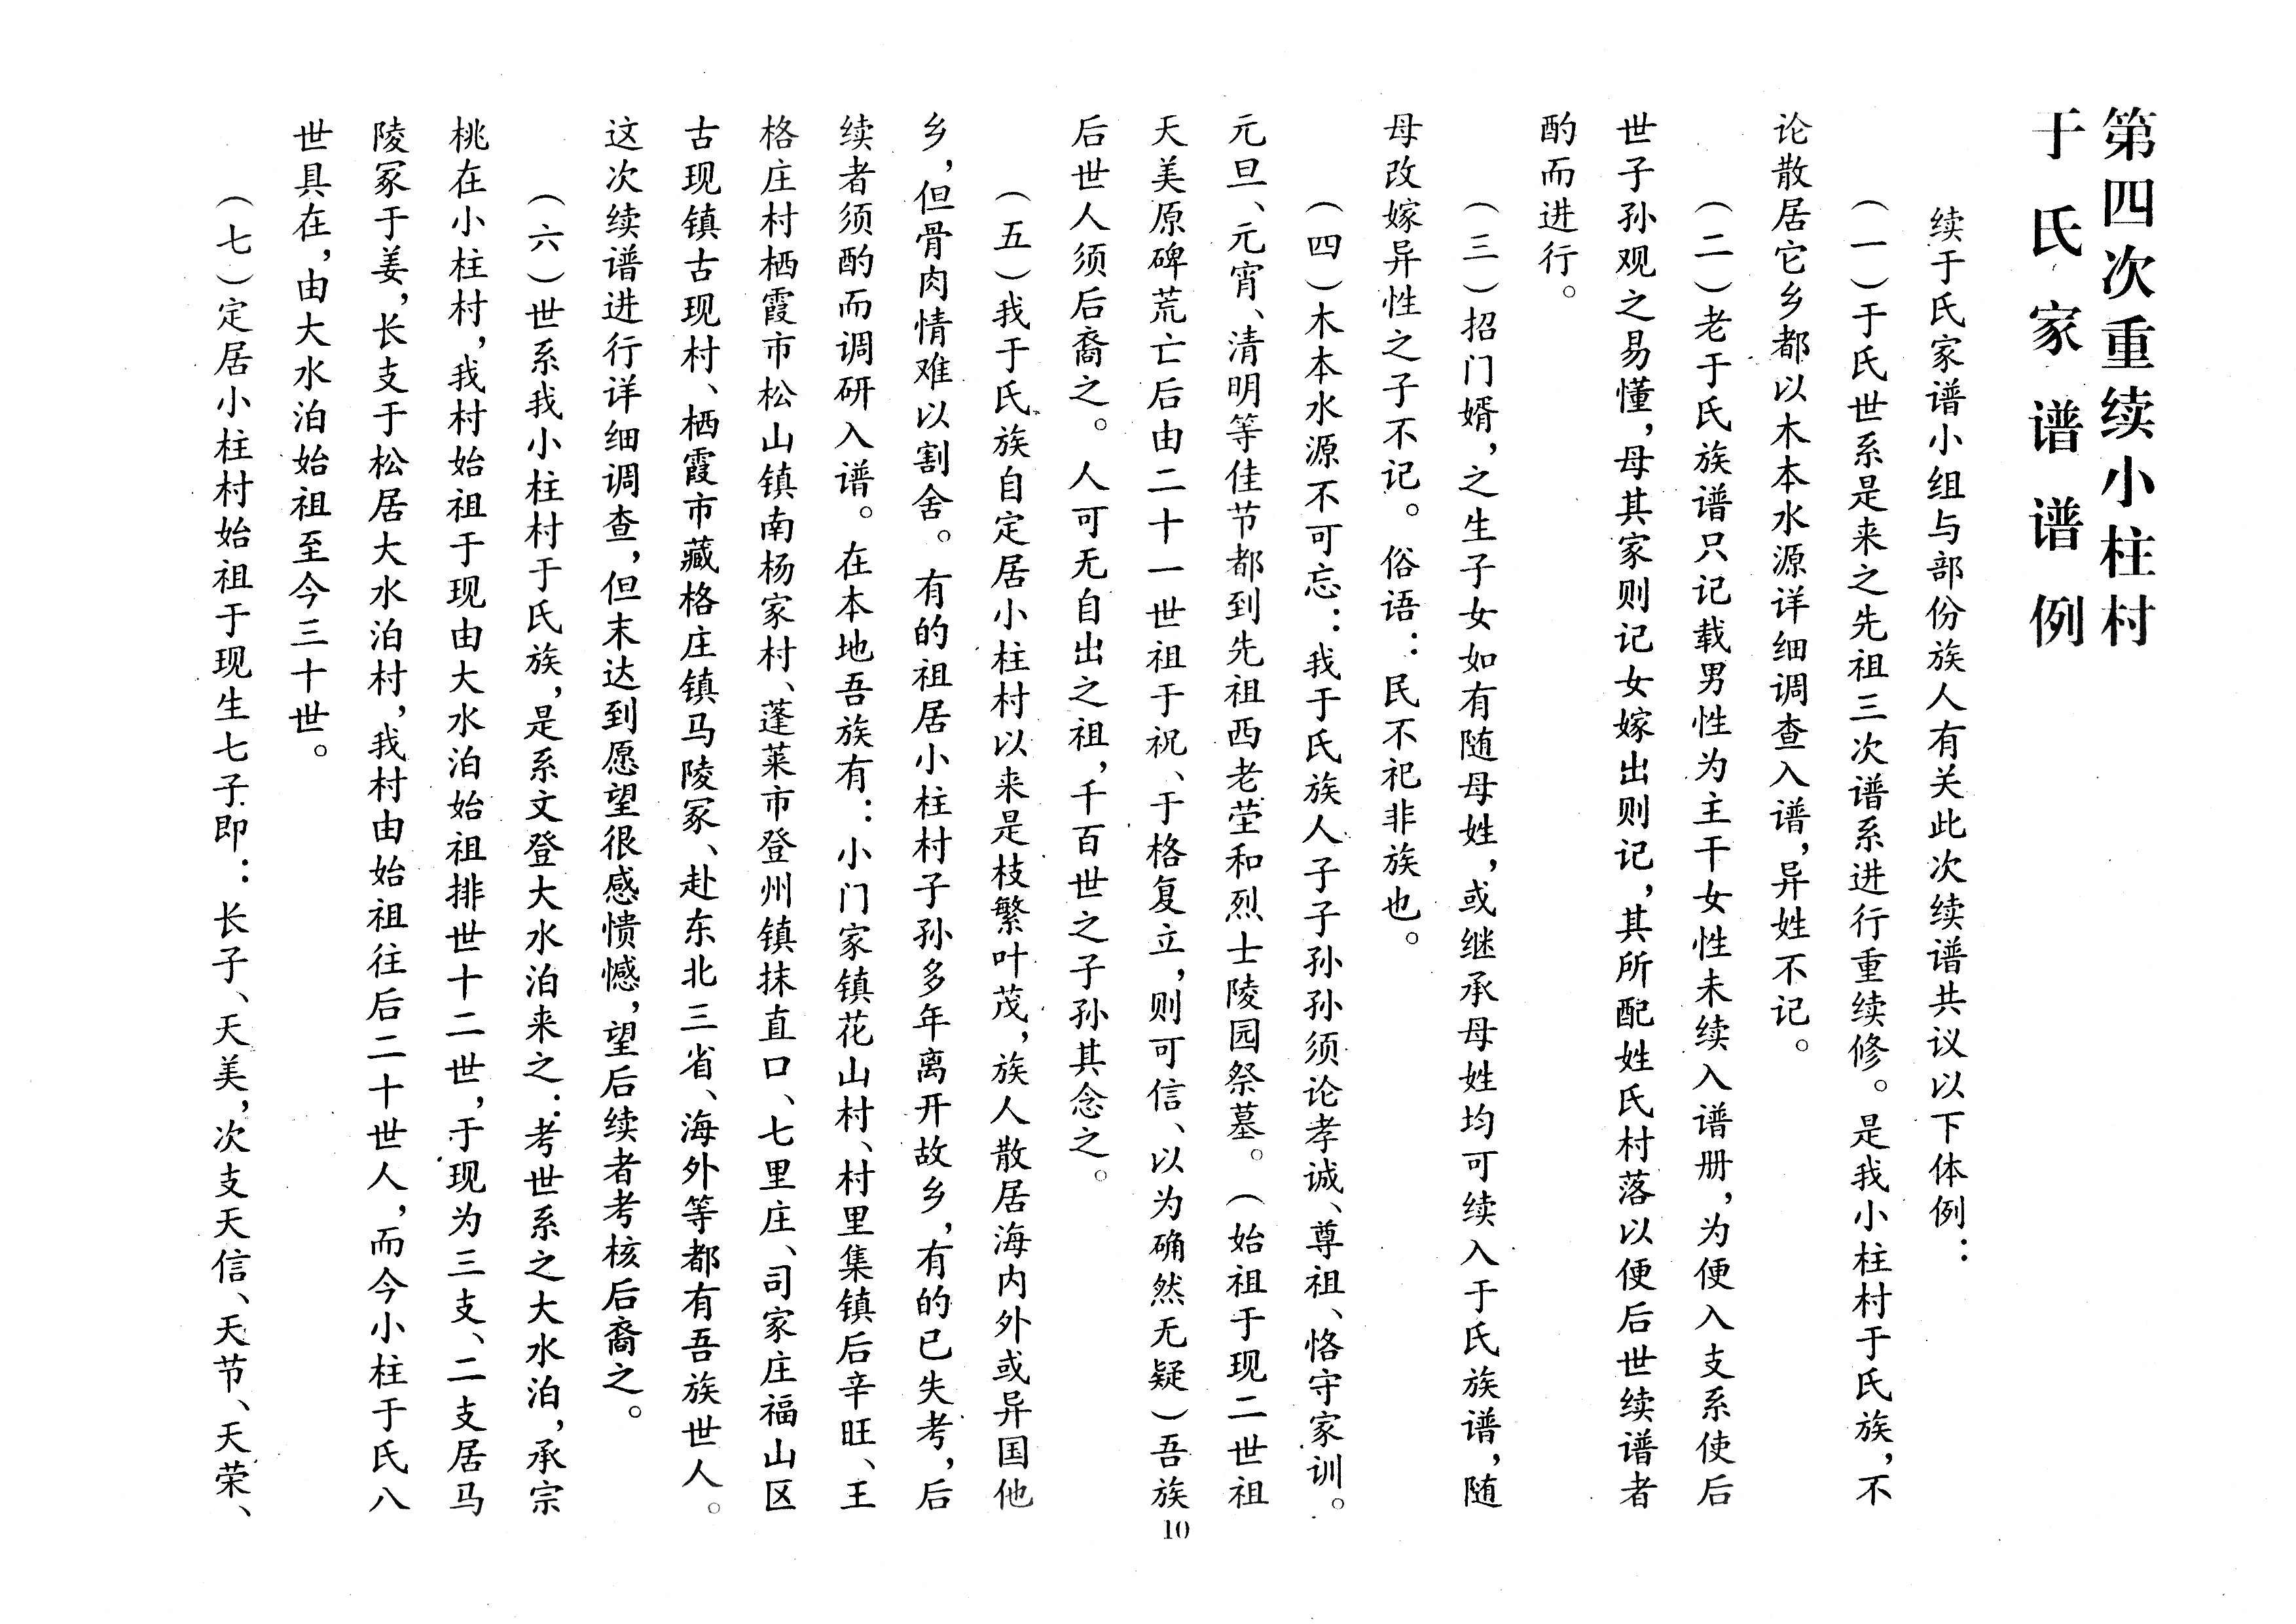 第四次重续小柱村
于氏家谱谱例
续于氏家谱小组与部份族人有关此次续谱共议以下体例：
（一）于氏世系是来之先祖三次谱系进行重续修。是我小柱村于氏族，不
论散居它乡都以木本水源详细调查入谱，异姓不记。
（二）老于氏族谱只记载男性为主干女性未续入谱册，为便入支系使后
世子孙观之易懂，母其家则记女嫁出则记，其所配姓氏村落以便后世续谱者
酌而进行。
（三）招门婿，之生子女如有随母姓，或继承母姓均可续入于氏族谱，随
母改嫁异性之子不记。俗语：民不祀非族也。
（四）木本水源不可忘：我于氏族人子子孙孙须论孝诚、尊祖、恪守家训。
元旦、元宵、清明等佳节都到先祖西老茔和烈士陵园祭墓。（始祖于现二世祖
天美原碑荒亡后由二十一世祖于祝、于格复立，则可信、以为确然无疑）吾族
后世人须后裔之。人可无自出之祖，千百世之子孙其念之。
（五）我于氏族自定居小柱村以来是枝繁叶茂，族人散居海内外或异国他
乡，但骨肉情难以割舍。有的祖居小柱村子孙多年离开故乡，有的已失考，后
续者须酌而调研入谱。在本地吾族有：小门家镇花山村、村里集镇后辛旺、王
格庄村栖霞市松山镇南杨家村、蓬莱市登州镇抹直口、七里庄、司家庄福山区
古现镇古现村、栖霞市藏格庄镇马陵冢、赴东北三省、海外等都有吾族世人。
这次续谱进行详细调查，但末达到愿望很感愦憾，望后续者考核后裔之。
（六）世系我小柱村于氏族，是系文登大水泊来之：考世系之大水泊，承宗
桃在小柱村，我村始祖于现由大水泊始祖排世十二世，于现为三支、二支居马
陵冢于姜，长支于松居大水泊村，我村由始祖往后二十世人，而今小柱于氏八
世具在，由大水泊始祖至今三十世。
（七）定居小柱村始祖于现生七子即：长子、天美，次支天信、天节、天荣、
10